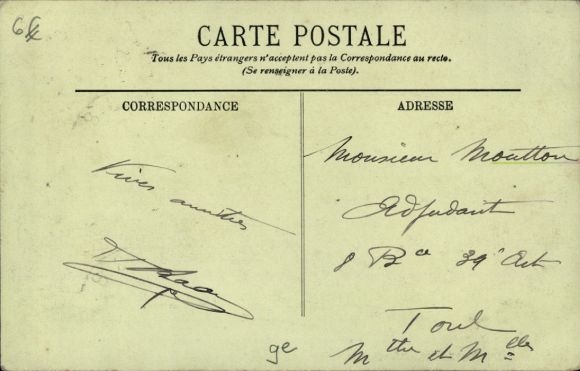 CARTE POSTALE
Tous les Pays étrangers n'acceptent pas la Correspondance au recto.
(Se renseigner à la Poste).
CORRESPONDANCE
Vives amitiés
ADRESSE
Monsieur Moutton
Adjudant
8 Bie 39e Art
Toul
Mthe et Mlle